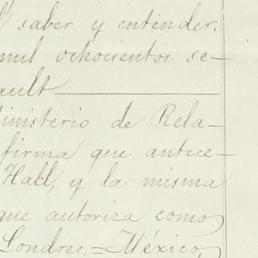 l saber y entender.
mil ochocientos se-
ault
inisterio de Rela-
firma que antece-
Hall, y la misma
que autoriza como
Londres.=México,